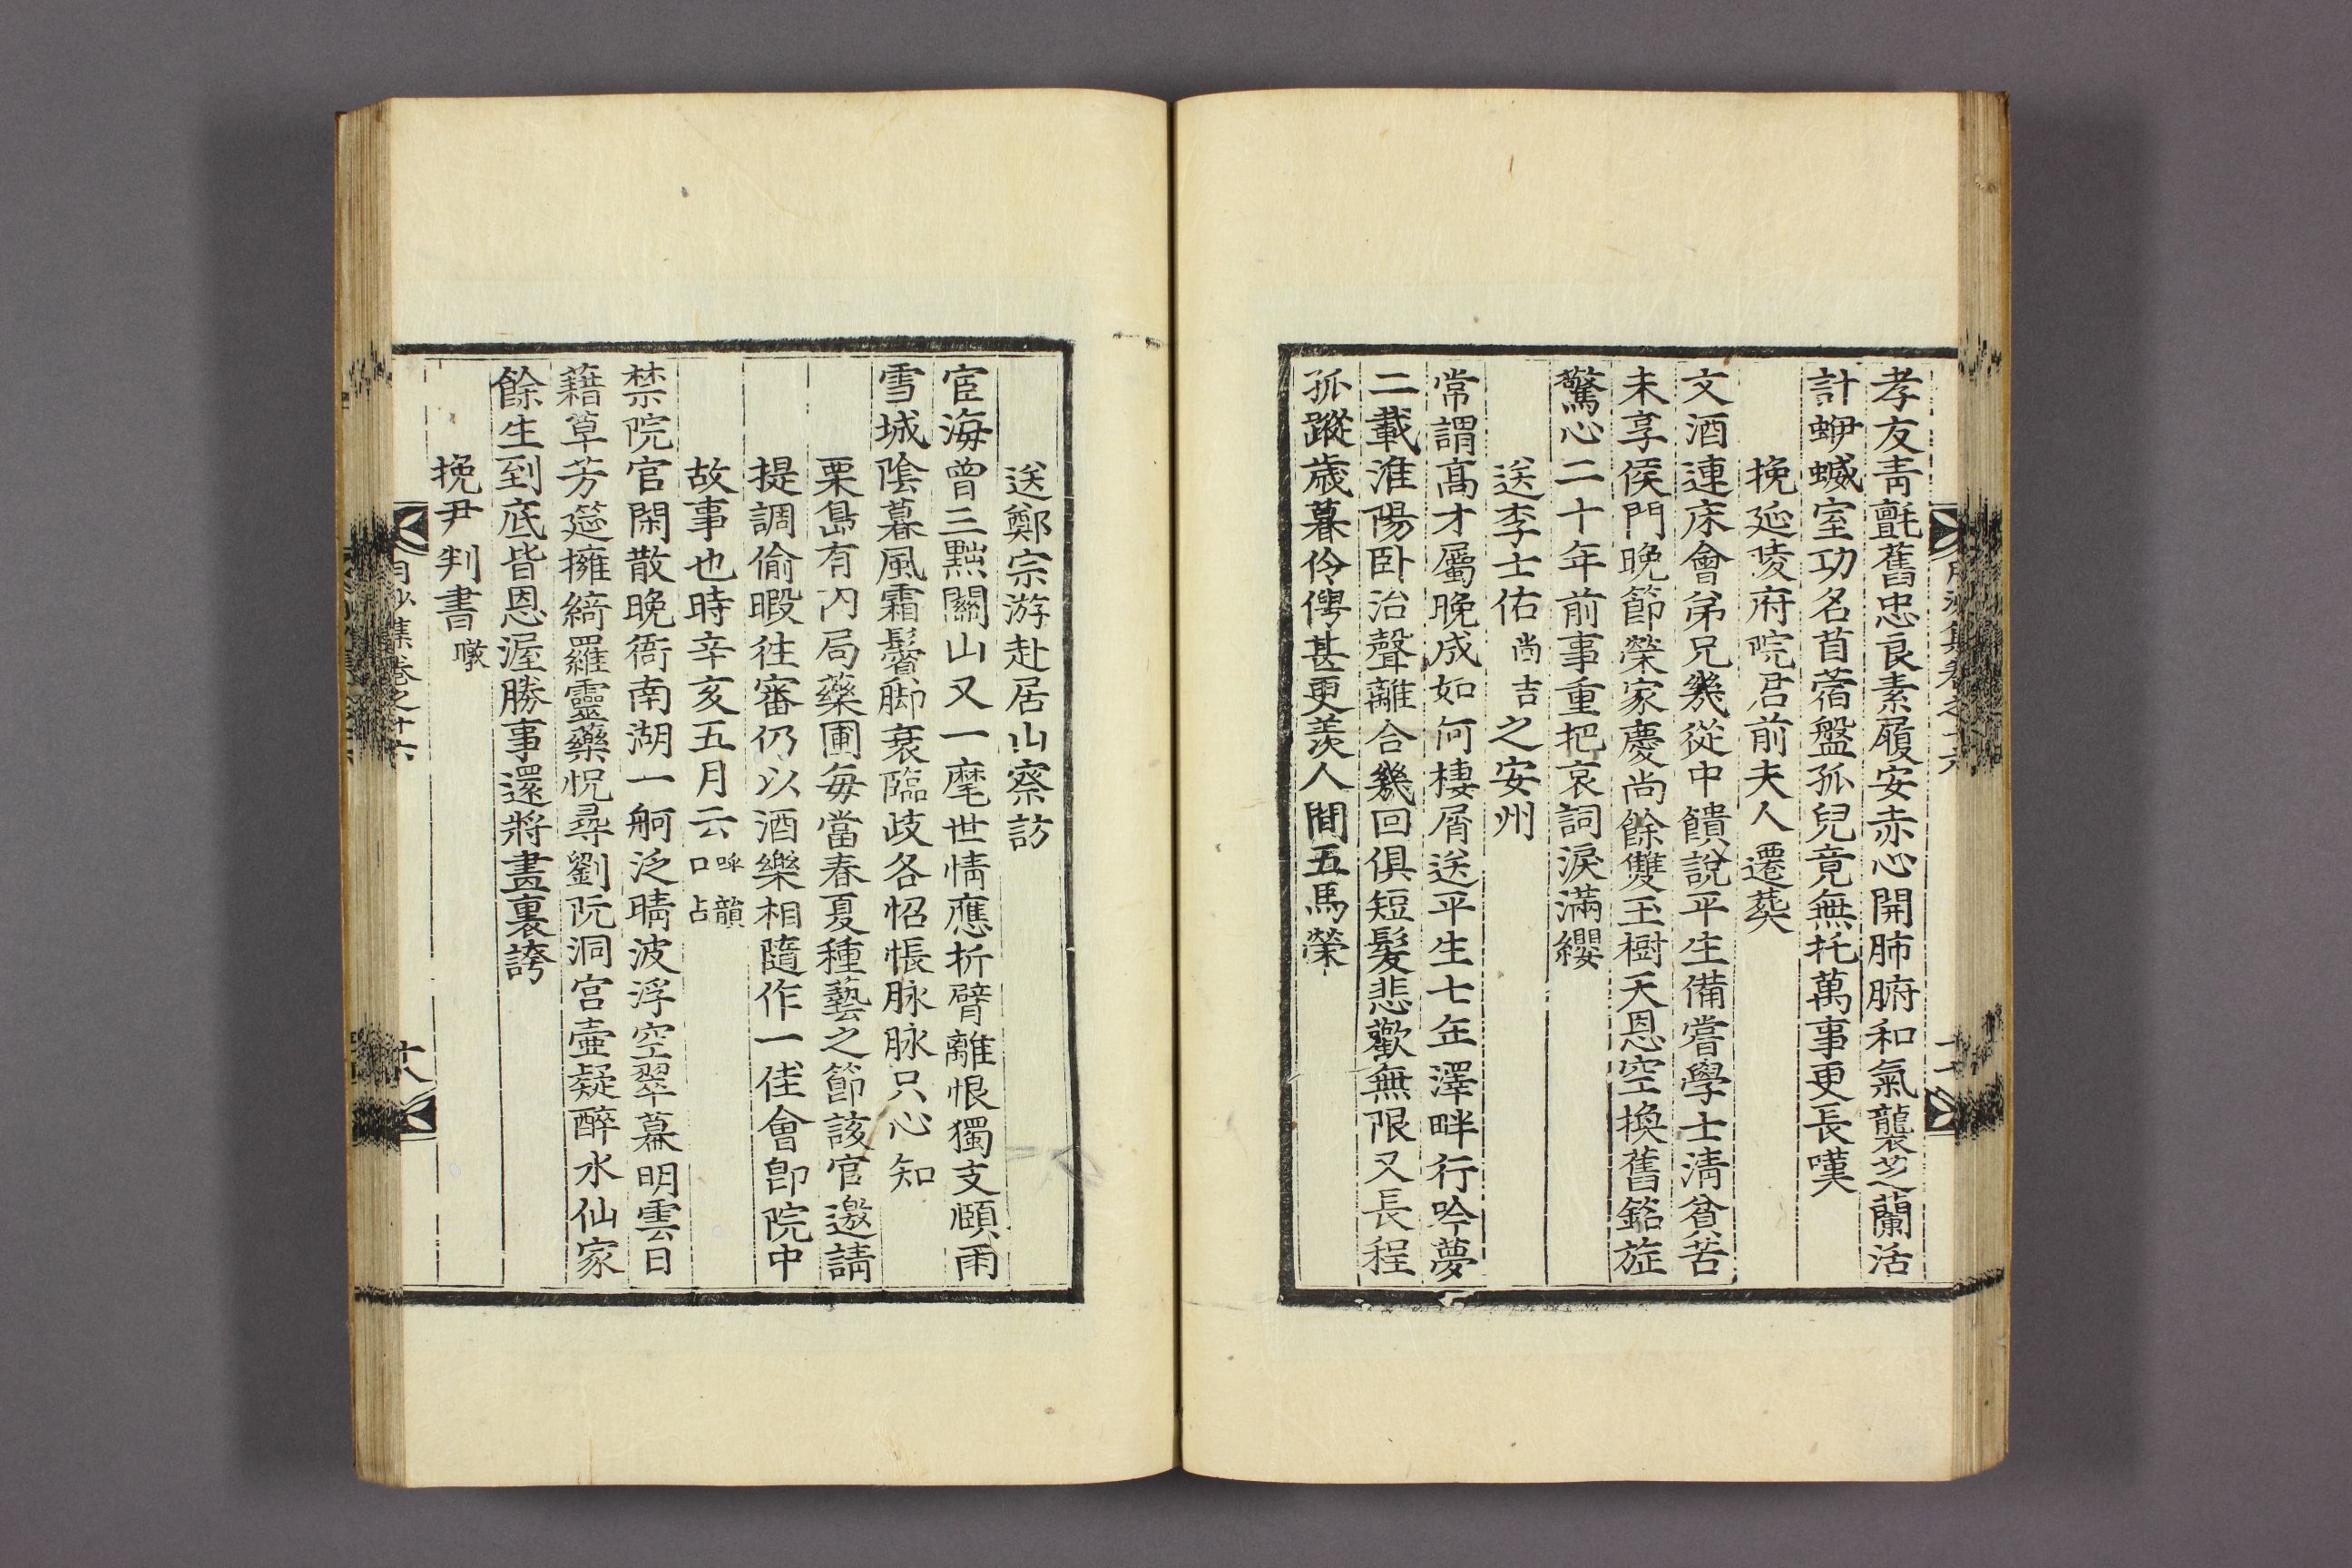 孝友靑氈舊忠良素履安赤心開肺腑和氣襲芝蘭活
計蛜蝛室功名苜蓿盤孤兒竟無托萬事更長嘆
挽延陵府院君前夫人遷葬
文酒連床會弟兄幾從中饋說平生備嘗學士淸貧苦
未享侯門晩節榮家慶尙餘雙玉樹天恩空換舊銘旌
驚心二十年前事重把哀詞淚滿纓
送李士佑尙吉之安州
常謂高才屬晩成如何棲屑送平生七年澤畔行吟夢
二載淮陽卧治聲離合幾回俱短髮悲歡無限又長程
孤蹤歲暮伶俜甚更羨人間五馬榮
送鄭宗游赴居山察訪
宦海曾三黜關山又一麾世情應折臂離恨獨支頤雨
雪城陰暮風霜鬢脚衰臨歧各怊悵脉脉只心知
栗島有內局藥圃每當春夏種藝之節該官邀請
提調偷暇往審仍以酒樂相隨作一佳會卽院中
故事也時辛亥五月云呼韻口占
禁院官閑散晩衙南湖一舸泛晴波浮空翠幕明雲日
藉草芳筵擁綺羅靈藥怳尋劉阮洞宮壷疑醉水仙家
餘生到底皆恩渥勝事還將畫裏誇
挽尹判書暾
月沙集卷之十六
十八